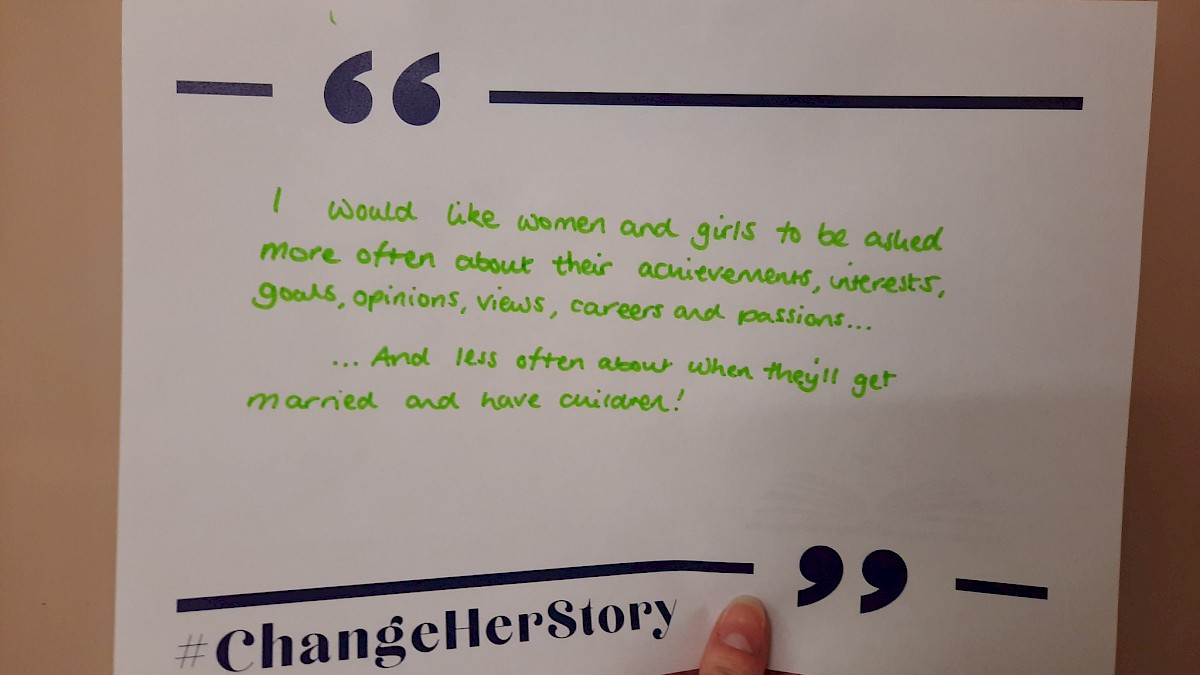 “
I would like women and girls to be asked
more often about their achievements, interests,
goals, opinions, views, careers and passions...
... And less often about when they'll get
married and have children!
”
#ChangeHerStory